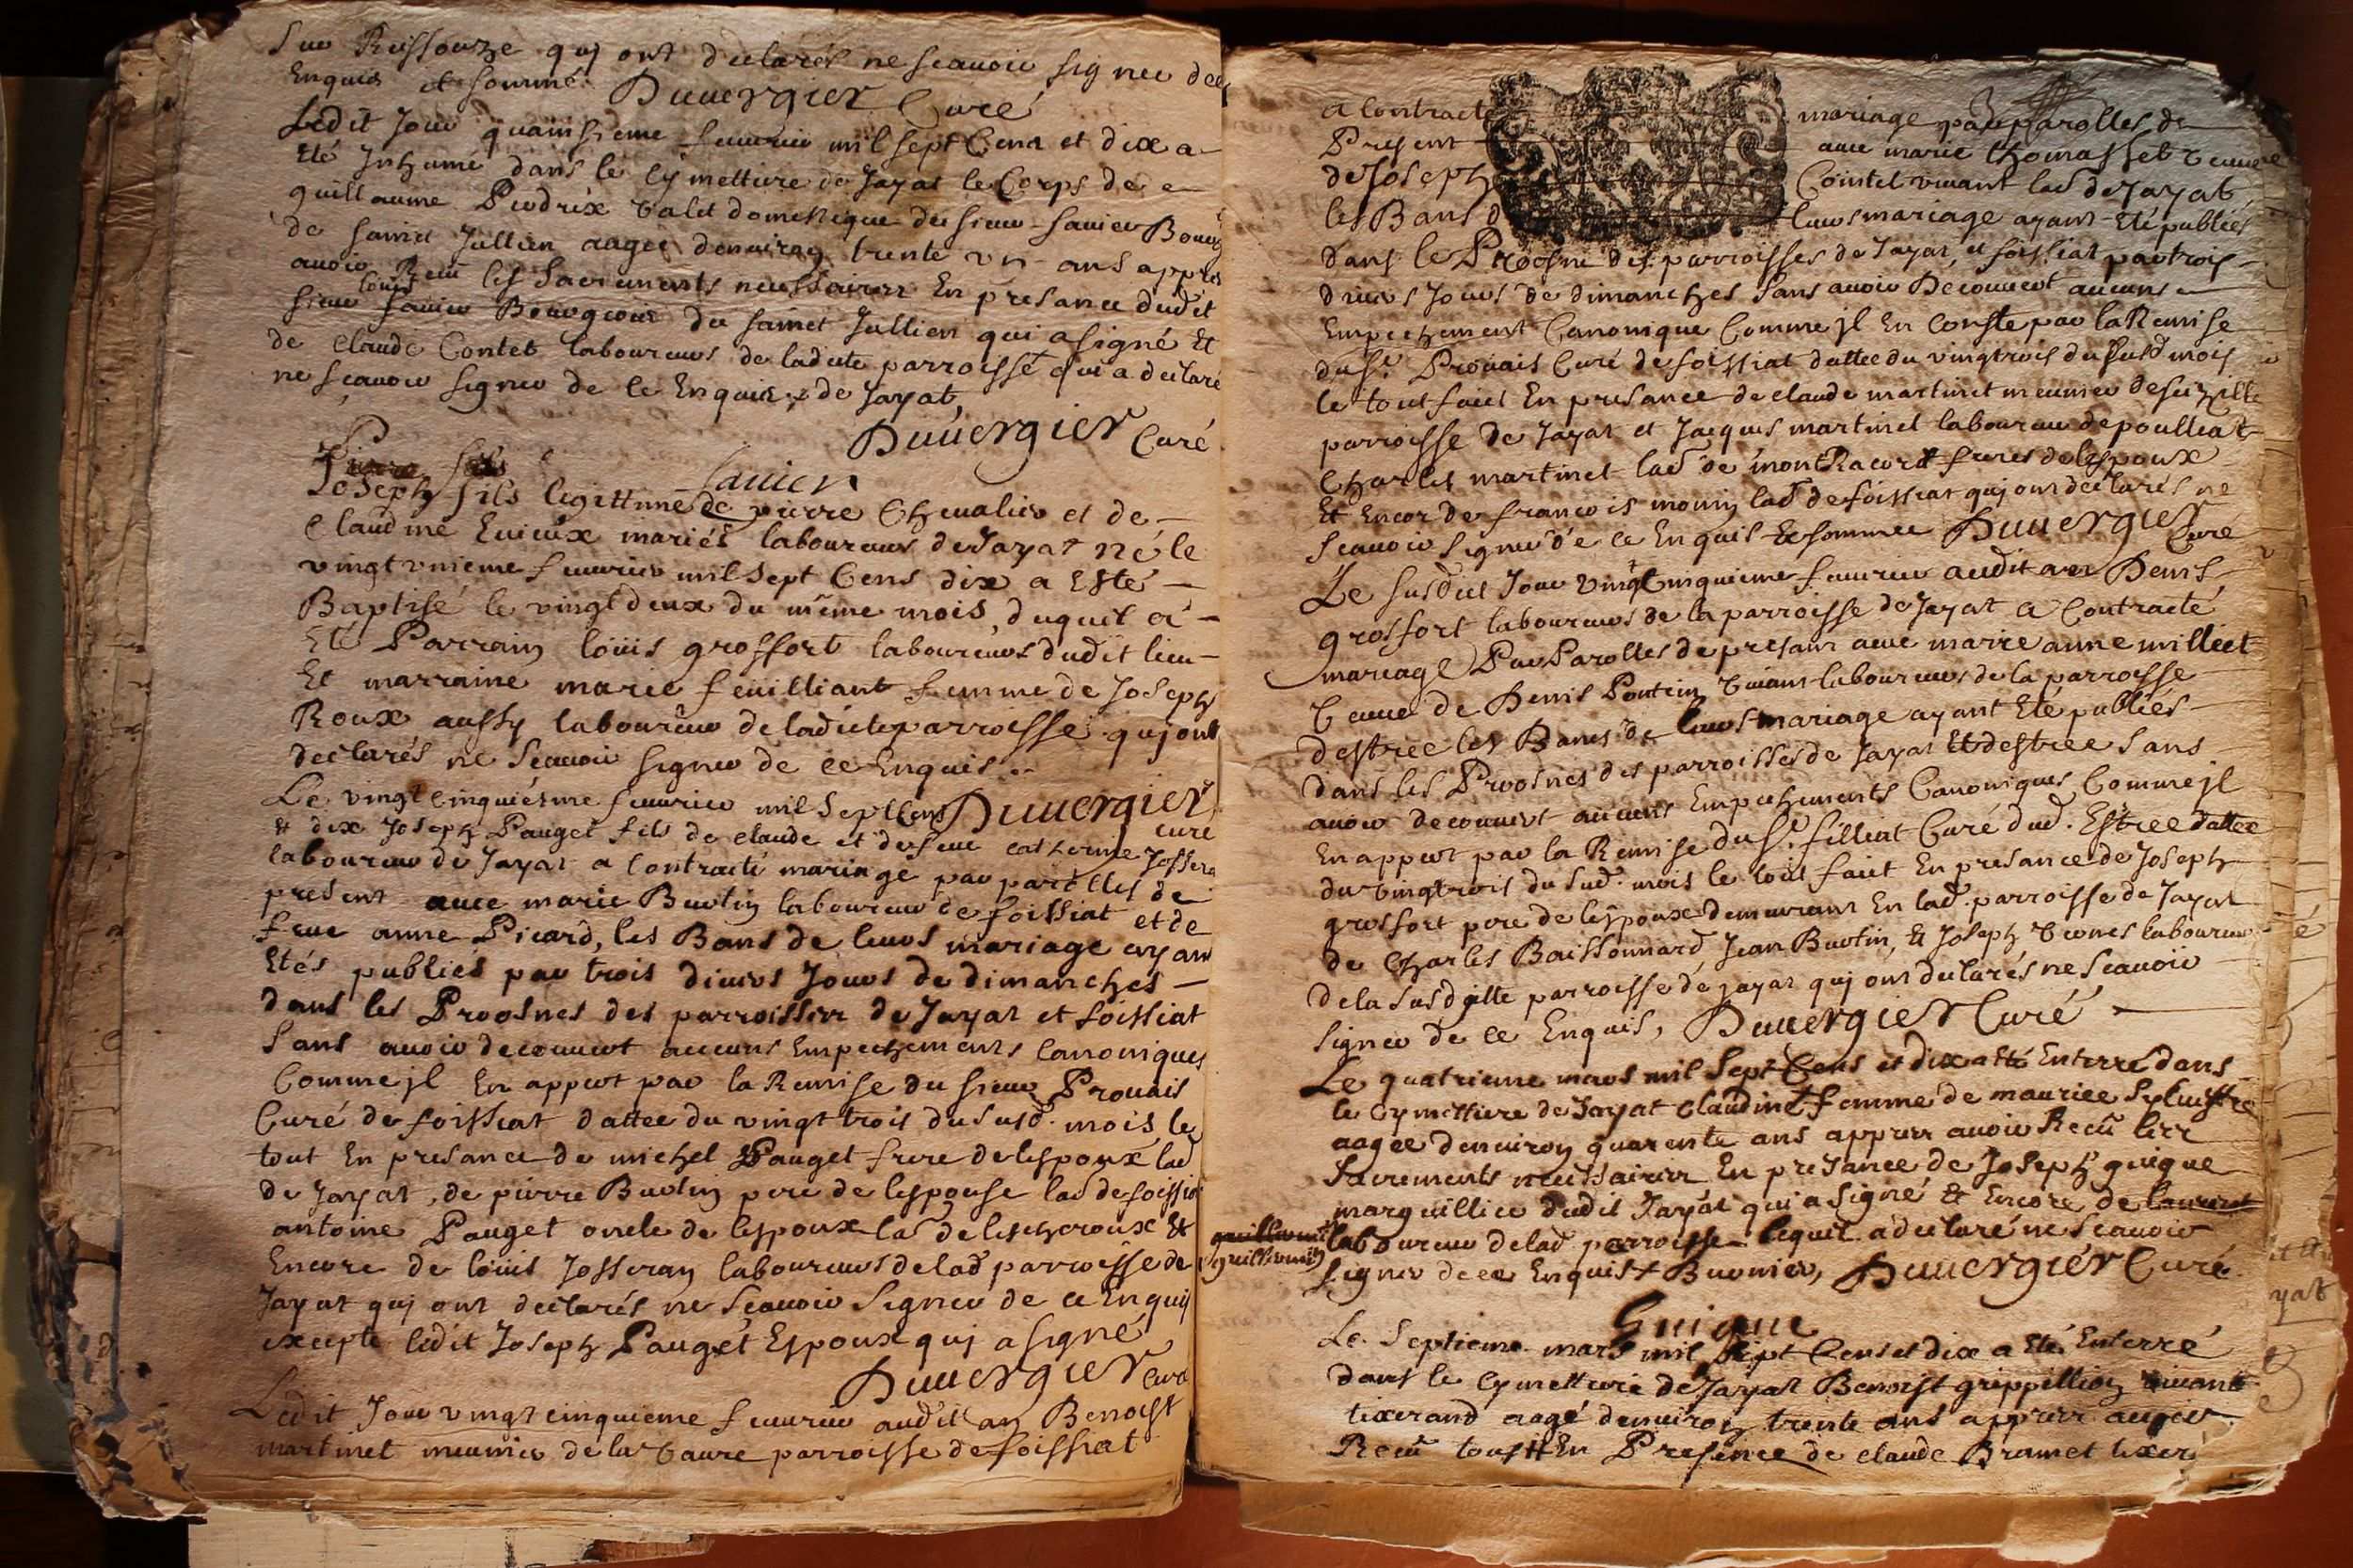 Sur Reissouze quj ont declarés ne scauoir signer de ce
Enquis et sommé. Duuergier Curé
Ledit Jour quainsieme feurier mil sept Cens et dix a
Eté Inhumé dans le Cÿmettiere de Jayat le Corps de
guillaume Perdrix valet domestique du sieur sauier Bourg
de sainct Jullien aagée denuiron trente vn ans appres
auoir Receu les Sacrements necessairer En presance dudit
sieur louis sauier Bourgeois du sainct Jullien qui a signé Et
de Claude Contet laboureurs de ladite parroisse qui a declaré
ne scauoir signer de ce Enquis x de Jayat,
Duuergier Curé
Sauier
Pierre fils
Joseph fils legittime de pierre Cheualier et de
Claudine Euieux mariés laboureurs de Jayat né le
vingt vnieme feurier mil Sept Cens dix a Esté
Baptisé le vingt deux du même mois, duquel a
Eté Parrain loüis grosfort laboureurs dudit lieu
Et marraine marie feüilliant femme de Joseph
Roux aussy laboureur de ladicte parroisse quj ont
declarés ne Scauoir signer de ce Enquis.
Le vingt cinquiésme feurier mil Sept Cens Duuergier curé
et dix Joseph Pauget fils de claude et de feue catherine Jossera
laboureur de Jayat a Contracté mariage par parolles de
present auec marie Buotin laboureur de foissiat et de
feue anne Picard, les Bans de leurs mariage ayant
Etés publiés par trois diuers Jours de dimanches
dans les Proosnes des parroisser de Jayat et foissiat
Sans auoir decouuert aucuns Empechements Canoniques
Comme jl En appert par la Remise du sieur Prouais
Curé de foissiat dattee du vingt trois du susd. mois le
tout En presance de michel Pauget frere de lespoux lad
de Jayat, de pierre Buotin pere de lespouse lad de foissia
antoine Pauget oncle de lespoux lad de lescheroux Et
Encore de loüis Josseran laboureurs de lad parroisse de
Jayat quj ont declarés ne Scauoir Signer de ce Enquis
excepte ledit Joseph Pauget Espoux quj a signé
Duuergier Curé
Ledit Jour vingt cinquieme feurier audit an Benoist
martinet meunier de la vaure parroisse de foissiat
a Contracté mariage par parolles de
Present auec marie thomasset veuue
de Joseph Cointet viuant lad de Jayat
les Bans de leurs mariage ayant Eté publiés
dans le Proosne des parroisses de Jayat, et foissiat par trois
diuers Jours de dimanches Sans auoir Decouuert aucuns
Empechement Canonique Comme jl En conste par la Remise
du Sr. Prouais Curé de foissiat dattee du vingtrois du susd mois
le tout faict En presance de claude martinet meunier de
parroisse de Jayat et Jacques martinet laboureur de poulliat
Charles martinet lad de montRacord freres de lespoux
Et Encor de francois monin lad de foissiat quj ont declarés ne
Scauoir Signer de ce Enquis Et sommee Duuergier Curé
Le susdict Jour vingt cinquieme feurier audit an Denis
grosfort laboureurs de la parroisse de Jayat a Contracté
mariage Par Parolles de presant auec marie anne milliet
veuue de Denis Pontein viuant laboureurs de la parroisse
destree les Bancs de leurs mariage ayant Eté publiés
dans les Proosnes des parroisses de Jayat Et destree Sans
auoir decouuert aucuns Empechements Canoniques Comme jl
En appert par la Remise du Sr. filliat Curé dud. Estree dattee
du vingtrois du Sud. mois le tout faict En presance de Joseph
grosfort pere de lespoux demeurant En lad. parroisse de Jayat
de Charles Baissonnard Jean Buotin, Et Joseph laboureurs
de la susdicte parroisse de jayat quj ont declarés ne Scauoir
Signer de ce Enquis, Duuergier Curé
Le quatrieme mars mil Sept Cens et dix a Eté Enterré dans
le Cymettiere de Jayat Claudine femme de maurice Syluestre
aagée denuiron quarente ans apprer auoir Receü ler
Sacrements necessairer En presance de Joseph guigue
marguillier dudit Jayat qui a signé Et Encore de laurent
guillermin
guillermin laboureur de lad parroisse lequel a declaré ne Scauoir
Signer de ce Enquis x Buonier, Duuergier Curé.
Guigue
Le Septieme mars mil Sept Cens et dix a Eté Enterré
dans le Cymettiere de Jayat Benoist grippillion viuant
tixerand aagé denuiron trente ans apprer auoir
Receü tous En Presence de claude Bramet tixer